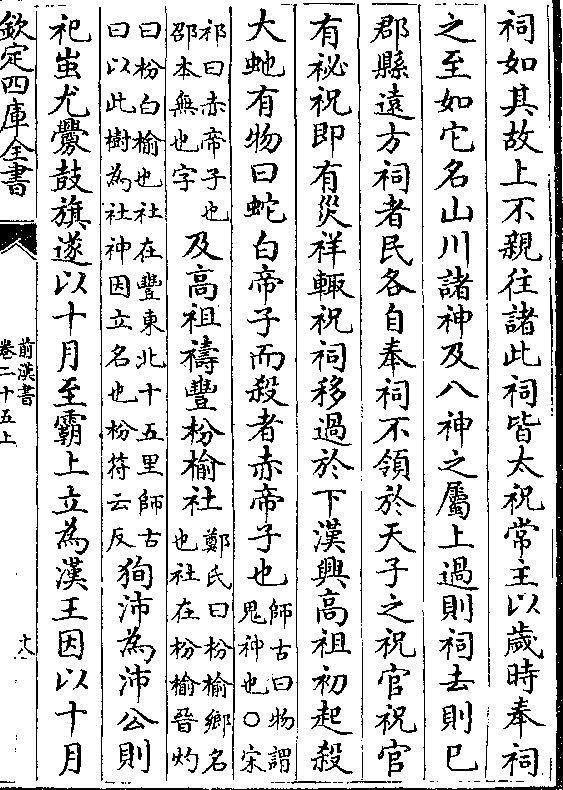 祠如其故上不親往諸此祠皆太祝常主以歲時奉祠
之至如它名山川諸神及八神之屬上過則祠去則已
郡縣遠方祠者民各自奉祠不領於天子之祝官祝官
有祕祝即有災祥輙祝祠移過於下漢興高祖初起殺
大虵有物曰蛇白帝子而殺者赤帝子也
師古曰物謂
鬼神也○宋
祁曰赤帝子也
邵本無也字
及高祖禱豐枌榆社
鄭氏曰枌榆鄉名
也社在枌榆晉灼
曰枌白榆也社在豐東北十五里師古
曰以此樹為社神因立名也枌符云反
狥沛為沛公則
祀蚩尤釁鼓旗遂以十月至霸上立為漢王因以十月
欽定四庫全書
前漢書
卷二十五上
十八